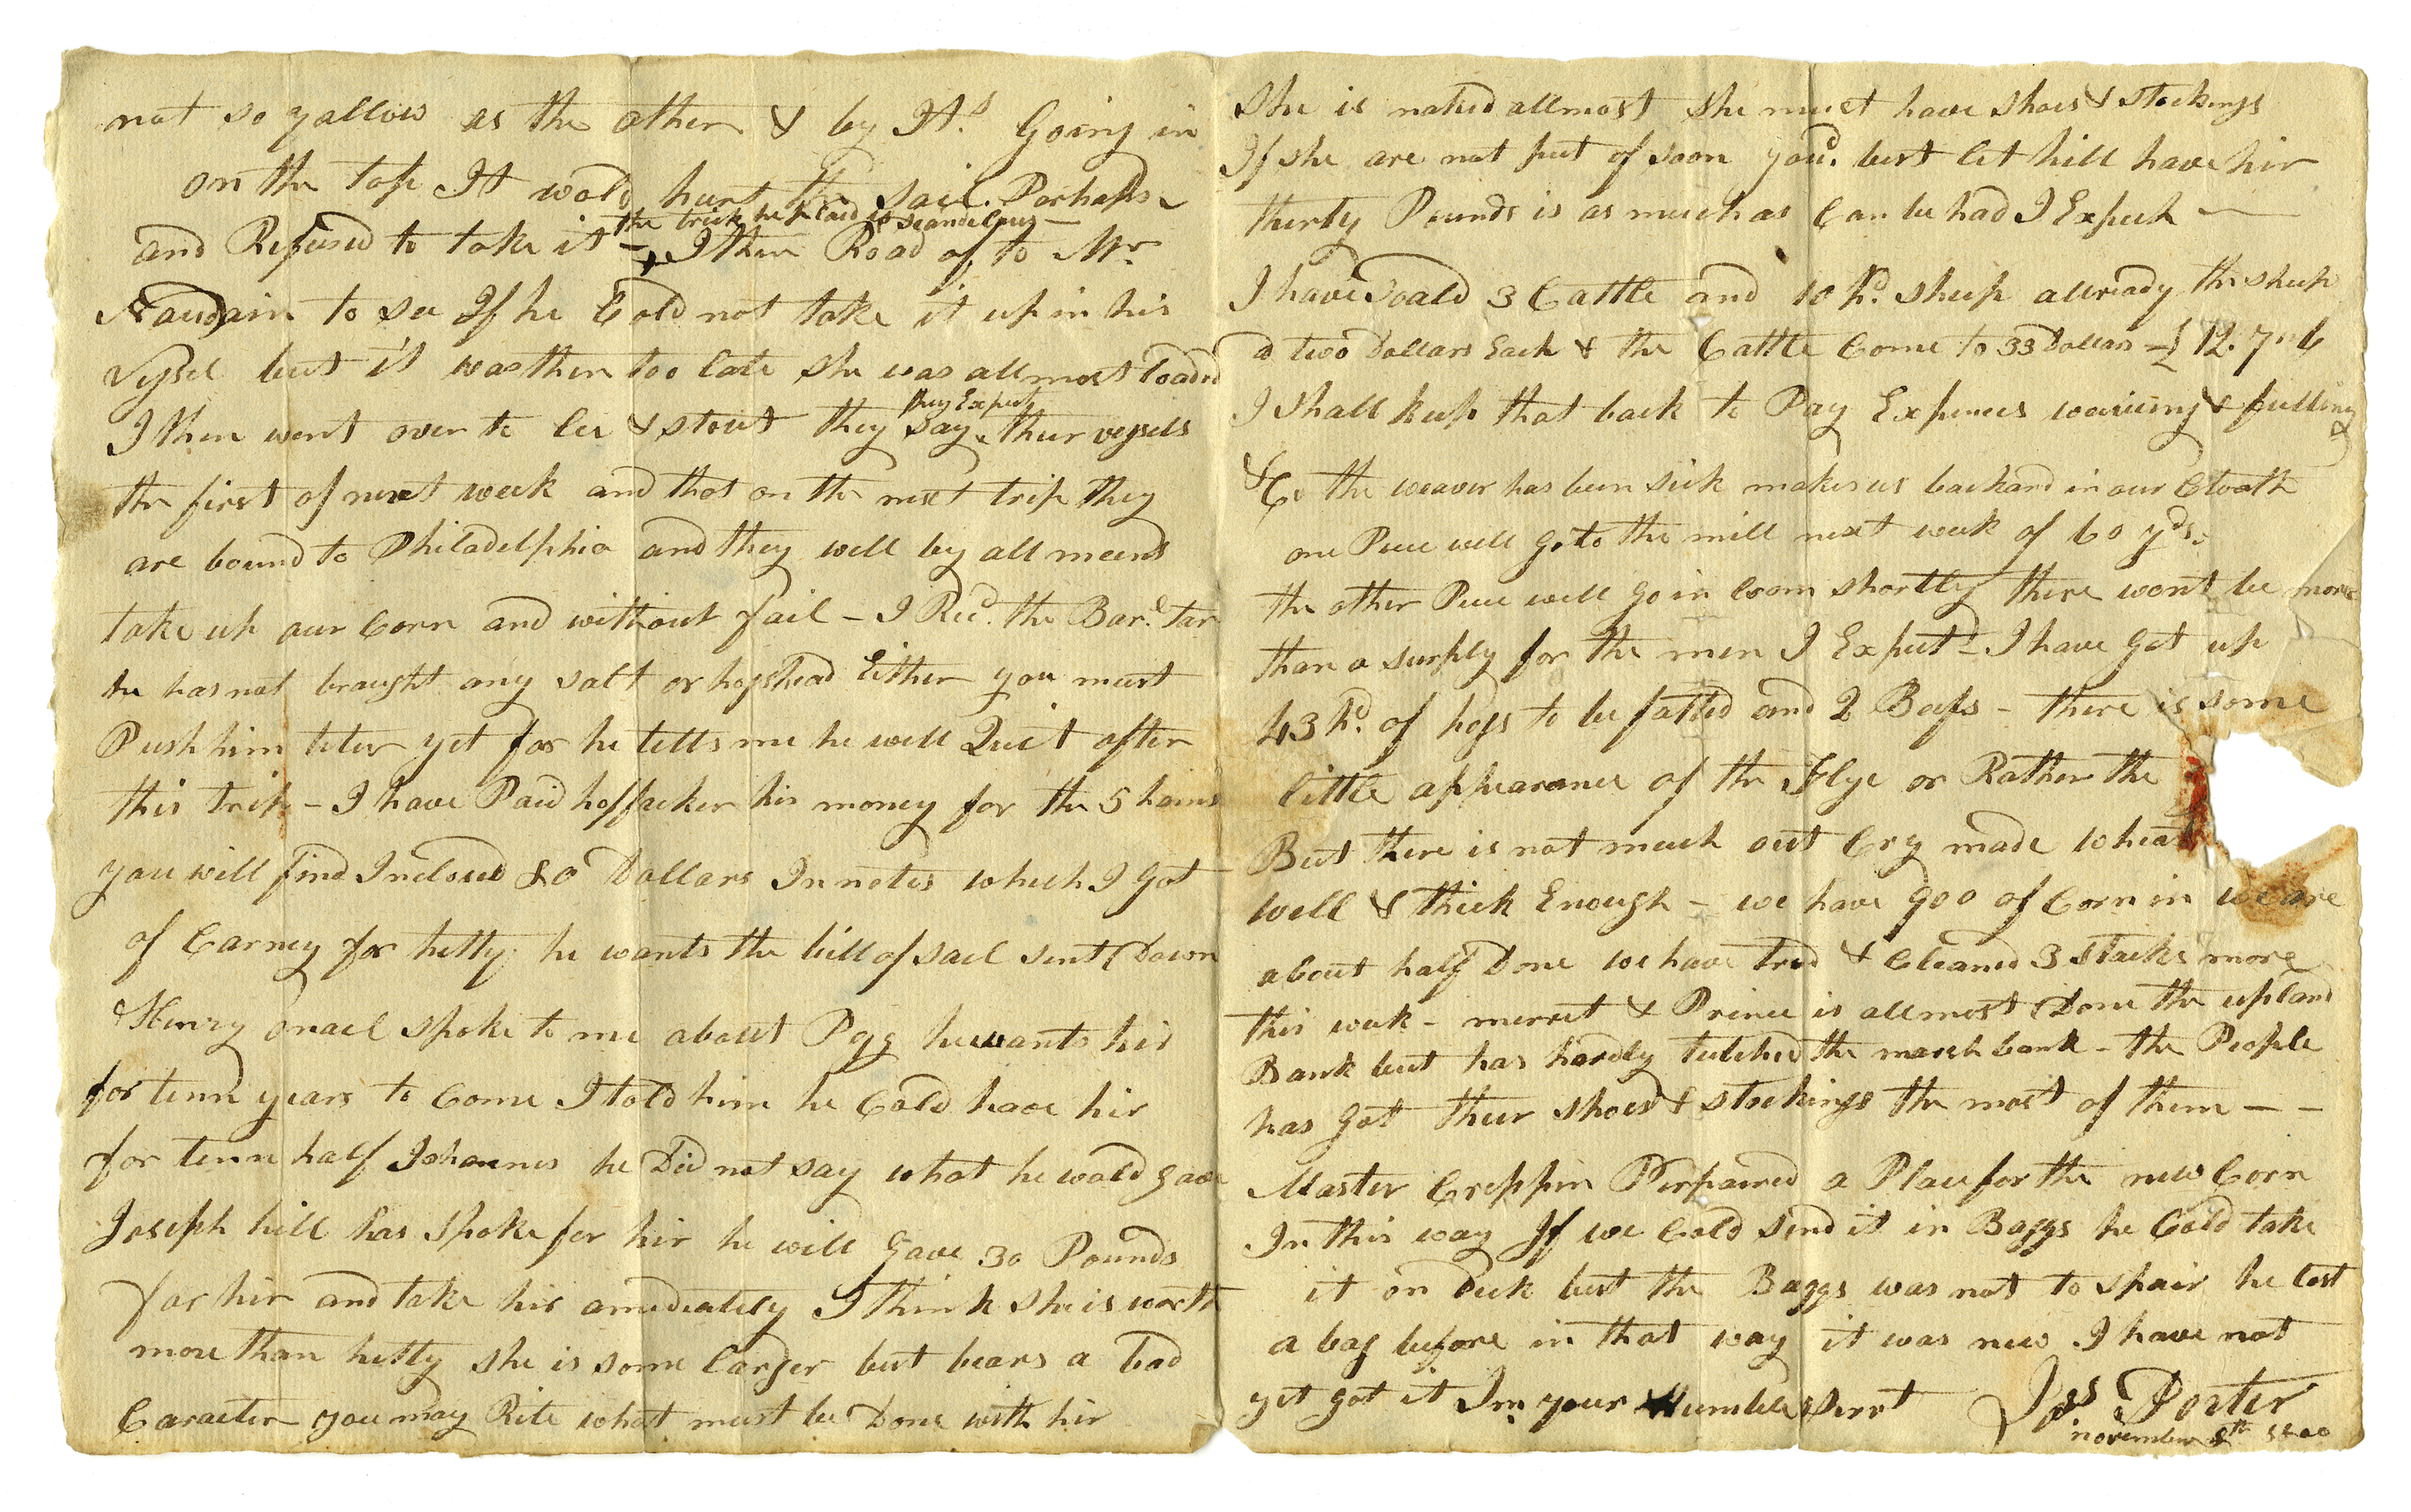 not so yallow as the other & by It.s Going in
on the top It wold hurt the sail. Perhaps
the trick he plaid is scandelous —
and Refused to take it — I then Road of to Mr.
Naudain to see If he Cold not take it up in his
Vessel but it was then too late she was allmost loaded
they Expect
I then went over to Lee & Stout they say their vessels
the first of next week and that on the next trip they
are bound to Philadelphia and they will by all meens
take up our Corn and without fail — I Recd. the Barl. Tar
he has not braught any salt or hogshead Either you must
Push him titer yet for he tells me he will Quit after
this trip — I have Paid hoffecker his money for the 5 hams
you will find Inclosed 80 Dollars In notes which I got
of Carney for hetty he wants the bill of sail sent Down
Henry Onael spoke to me about Pegg he wants hir
for tenn years to Come I told him he Cold have hir
for tenn half Johannes he Did not say what he wold gave
Joseph hill has spoke for hir he will Gave 30 Pounds
for hir and take hir amediately I think she is worth
more than hetty she is some larger but bears a bad
Caracter you may Rite what must be Done with hir
She is naked allmost she must have shoes & stockings
If she are not put of soon youd. best let hill have hir
thirty Pounds is as much as Can be had I Expect —
I have Soald 3 Cattle and 10 hd. sheep allready the sheep
a two Dollars Each & the Cattle Come to 33 Dollars — £12.7.6
I shall keep that back to Pay Expences weaving & fulling
&C. the weaver has been sick makes us backard in our Cloath
one Piece will go to the mill next week of 60 yds.
the other Piece will go in loom shortly there wont be more
than a surply for the men I Expect — I have Got up
43 hd. of hogs to be fatted and 2 Beefs — there is some
little appearance of the Flye or Rather the
But there is not much out Cry made wheat
well & thick Enough — we have 900 of Corn in we are
about half Done we have tred & Cleaned 3 stacks more
this week — merret & Prince is allmost Done the upland
Bank but has hardly tutched the marsh bank — the People
has Got their shoes & stockings the most of them — —
Master Creppin Perpaired a Place for the new Corn
In this way If we Cold send it in Baggs he Cold take
it on Deck but the Baggs was not to spair he lost
a bag before in that way it was new I have not
yet got it Im your Humble Servt Jos Porter
november 8th 1800